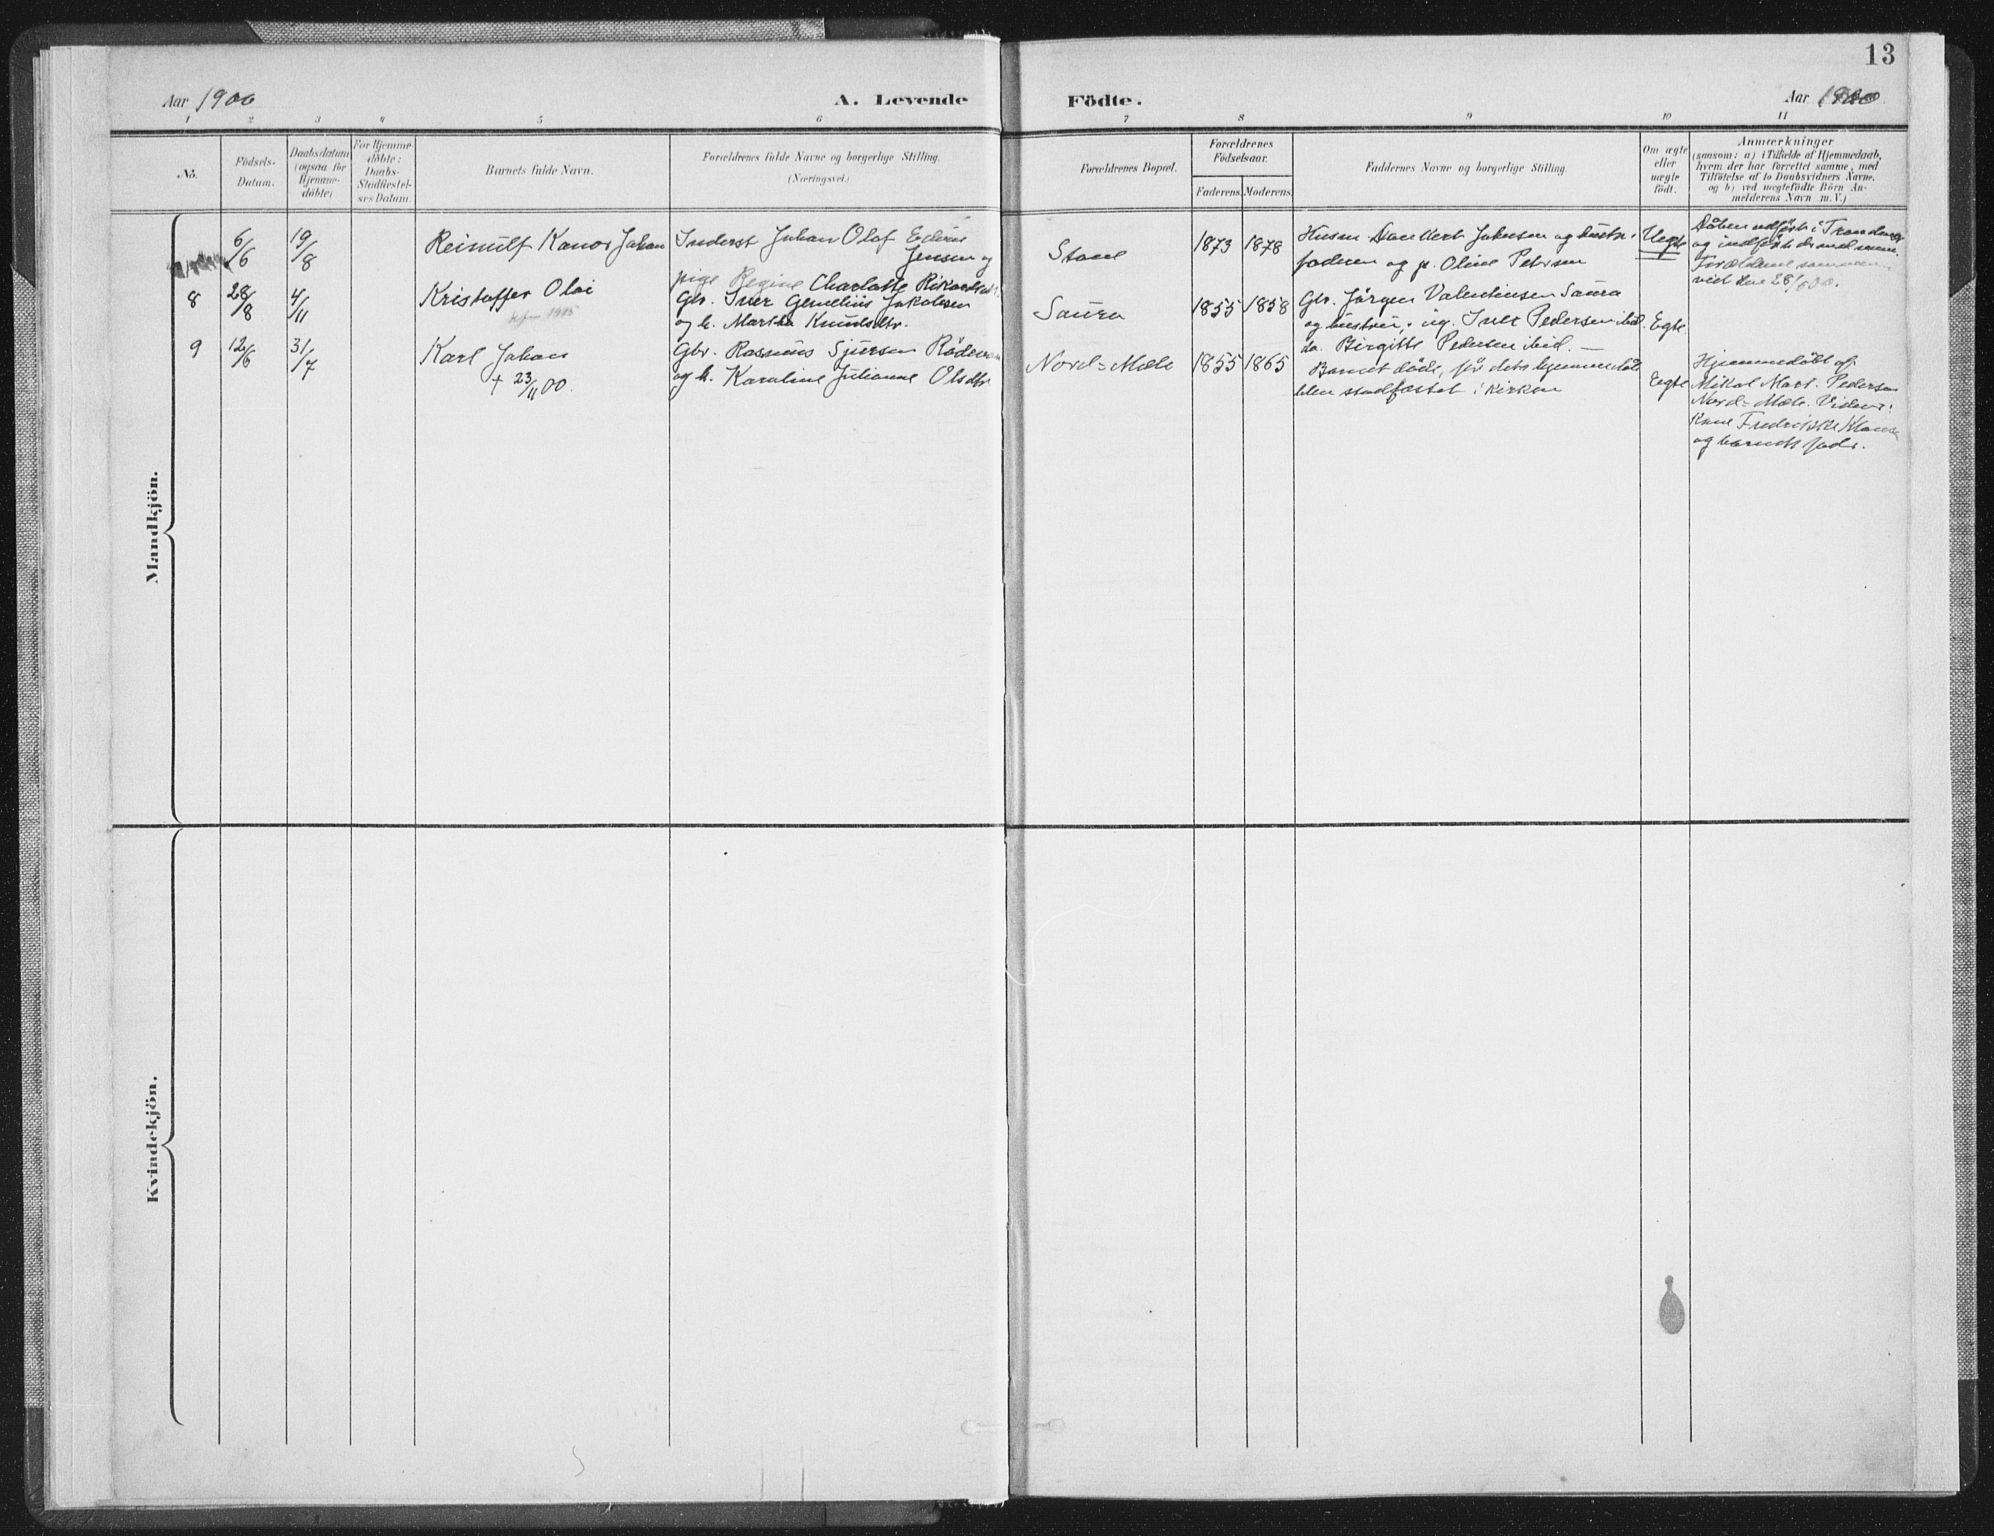 13
Aar 1900
A. Levende
Födte.
Aar 1900
1 2 3 4 5 6 7 8 9 10 11
No.
Födsels-
Datum.
Daabsdatum
(ogsaa for
Hjemme-
döbte)
For Hjemme-
döbte:
Daabs-
Stadfæstel-
ses Datum.
Barnets fulde Navn.
Forældrenes fulde Navne og borgerlige Stilling.
(Næringsvei.)
Forældrenes Bopæl.
Forældrenes
Födselsaar.
Faderens.
Moderens.
Faddernes Navne og borgerlige Stilling.
Om ægte
eller
uægte
født.
Anmærkninger
(saasom: a) i Tilfælde af Hjemmedaab,
hvem der har forrettet samme, med
Tilföielse af to Daabsvidners Navne,
og b) ved uægtefödte Börn An-
melderens Navn m. V.)
Mandkjön.
6/6
19/8
Reinulf Kanor Johan
Inderst Johan Olaf Edias
Jensen og
pige Regine Charlotte Rikardsdtr.
Stane
1873
1878
Husm. Dankert Jakobsen og hustr.
faderen og p. Oline Petersen
Uegte
Dåben udført i Trondenes
og indført
Forældrene sammen-
viet den 28/
8
28/8
4/11
Kristoffer Olai
1915
Gbr. Iver Cornelius Jakobsen
og h. Martha Knudsdtr.
Saura
1855
1858
Gbr. Jörgen Valentinsen Saura
og hustru, ug. Pedersen ibid.
do. Birgitte Pedersen ibid.
Egte
9
12/6
31/7
Karl Johan
+ 23/11 00.
Gbr. Rasmus Sjursen Rödevan
og h. Karoline Julianne Olsdtr
Nord-Mæle
1855
1865
Barnet døde, før dets hjemmedåb
blev stadfæstet i kirken
Egte
Hjemmedøbt af
Mikal Mart. Pedersen
Nord-Mæle. Vidner:
Kone Fredrikke
og barnets fader.
Kvindekjön.